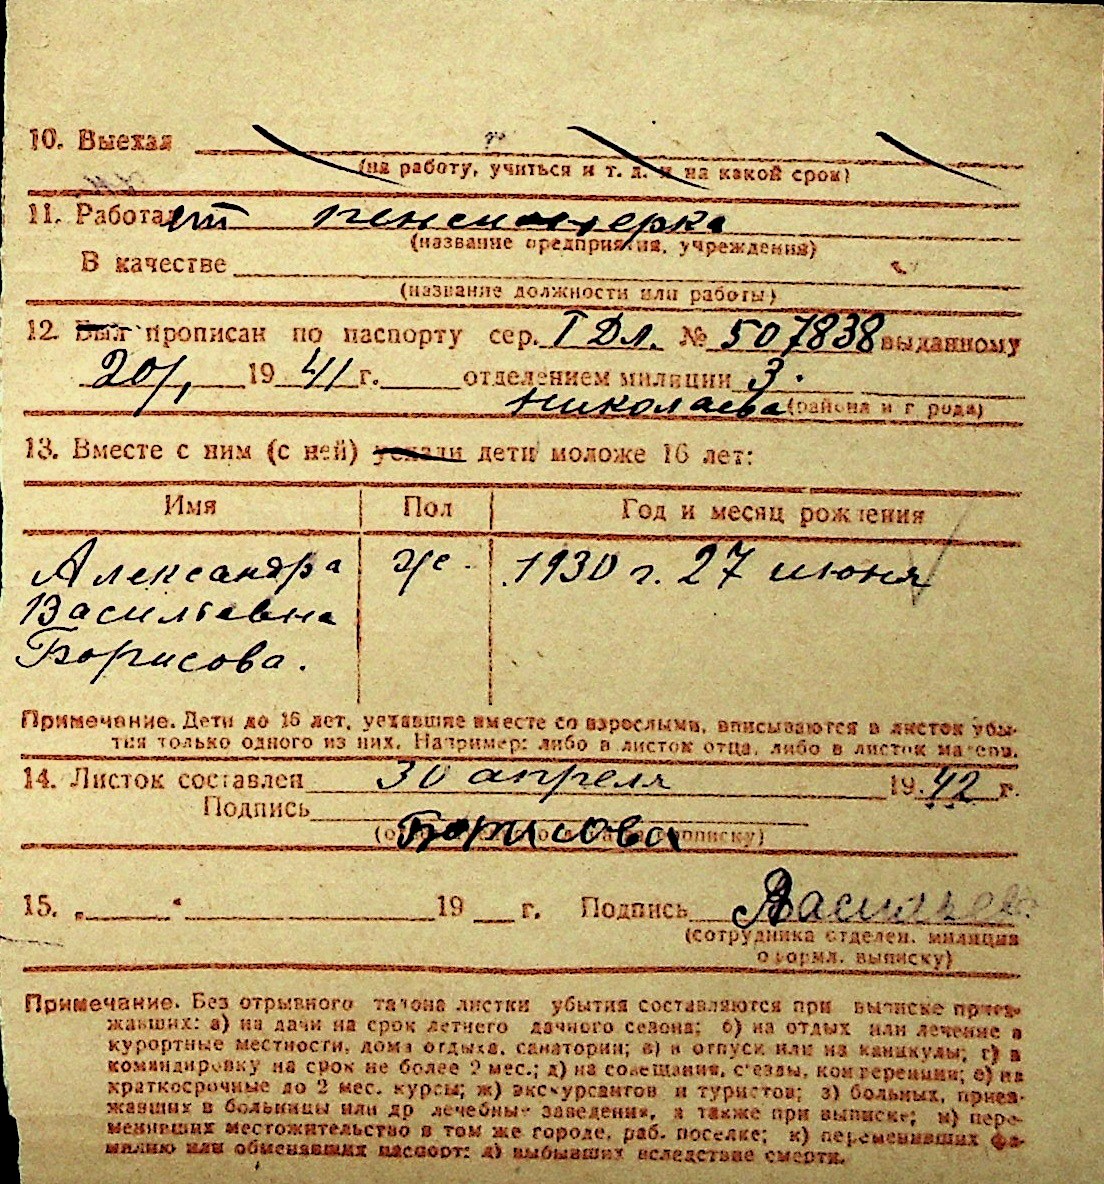 10. Выехал
(на работу, учиться и т. д. и на какой срок)
11. Работает пенсионерка
(название предприятия, учреждения)
В качестве
(название должности или работы)
12. Был прописан по паспорту сер. I Дл. № 507838 выданному
20/1 1941 г. отделением милиции 3.
Николаева (района и города)
13. Вместе с ним (с ней) уехали дети моложе 16 лет:
Имя Пол Год и месяц рождения
Александра же. 1930 г. 27 июня
Васильевна
Борисова.
Примечание. Дети до 16 лет, уехавшие вместе со взрослыми, вписываются в листок убы-
тия только одного из них. Например: либо в листок отца, либо в листок матери.
14. Листок составлен 30 апреля 1942 г.
Подпись
Борисова
15. „ “ 19 г. Подпись Васильев
(сотрудника отделен. милиции
оформл. выписку)
Примечание. Без отрывного талона листки убытия составляются при выписке приез-
жавших: а) на дачи на срок летнего дачного сезона; б) на отдых или лечение в
курортные местности, дома отдыха, санатории; в) в отпуск или на каникулы; г) в
командировку на срок не более 2 мес.; д) на совещания, с'езды, конференции; е) на
краткосрочные до 2 мес. курсы; ж) экскурсантов и туристов; з) больных, приез-
жавших в больницы или др лечебные заведения, а также при выписке; и) пере-
менивших местожительство в том же городе, раб. поселке; к) переменивших фа-
милию или обменявших паспорт; л) выбывших вследствие смерти.